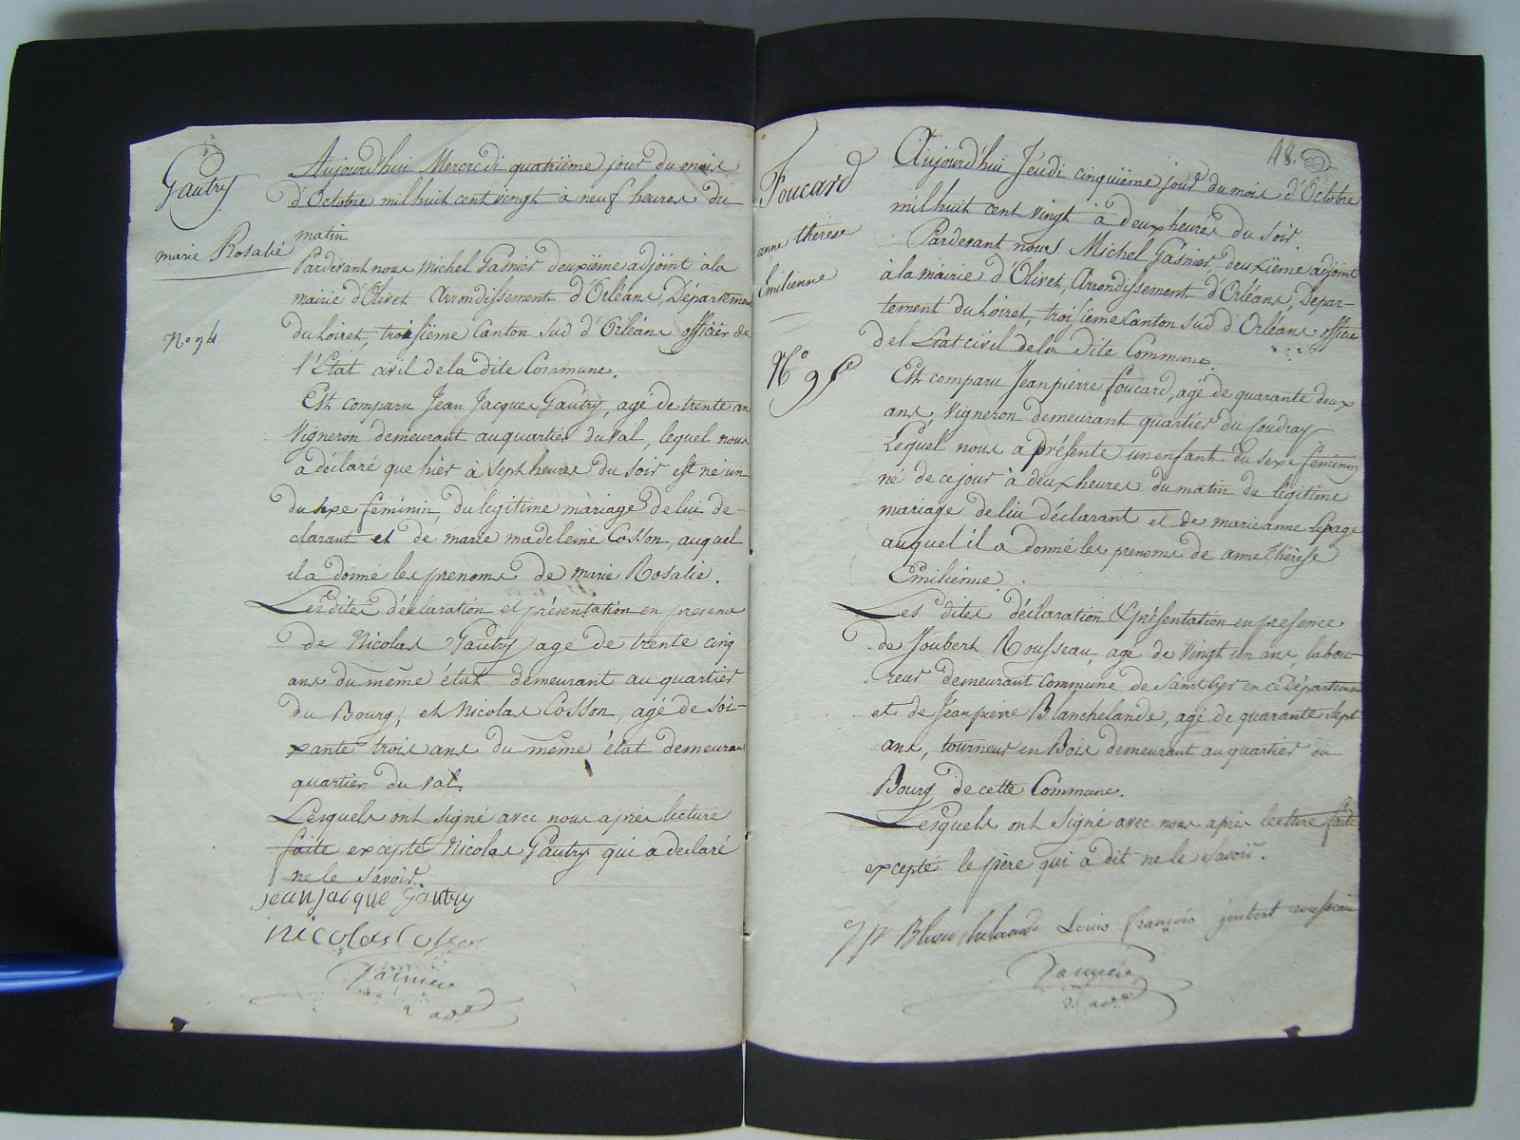 Gautry
marie Rosalie
N° 94
Aujourd'hui Mercredi quatrième jour du mois
d'Octobre mil huit cent vingt à neuf heures du
matin
Pardevant nous Michel Gasnier deuxième adjoint à la
mairie d'Olivet Arrondissement d'Orléans, Département
du Loiret, troisième Canton Sud d'Orléans officier de
l'Etat civil de la dite Commune.
Est comparu Jean Jacques Gautry, agé de trente an
Vigneron demeurant au quartier du Val, lequel nous
a déclaré que hier à Sept heures du soir est né un
du sexe féminin, du légitime mariage de lui dé-
clarant et de marie madeleine Cosson, auquel
il a donné les prenoms de Marie Rosalie.
Les dites déclaration et présentation en presence
de Nicolas Gautry agé de trente cinq
ans du même état demeurant au quartier
du Bourg, et Nicolas Cosson, agé de soi-
xante trois ans du même état demeurant
quartier du Val.
Lesquels ont signé avec nous après lecture
faite excepté Nicolas Gautry qui a déclaré
ne le savoir.
jean jacque Gautry
nicolas Cosson
Gasnier
18.
Foucard
anne thérèse
Emilienne
N° 95
Aujourd'hui Jeudi cinquième jour du mois d'Octobre
mil huit cent vingt à deux heures du soir.
Pardevant nous Michel Gasnier deuxième adjoint
à la mairie d'Olivet, Arrondissement d'Orléans, Dépar-
tement du Loiret, troisième Canton Sud d'Orléans officier
de l'Etat civil de la dite Commune.
Est comparu Jean pierre Foucard, agé de quarante deux
ans, Vigneron demeurant quartier du Coudray
Lequel nous a présenté un enfant du sexe féminin
né de ce jour à deux heures du matin de légitime
mariage de lui déclarant et de marie anne Lepage
auquel il a donné les prenoms de anne thérèse
Emilienne.
Les dites déclaration & présentation en presence
de Joubert Rousseau, agé de Vingt un ans, labou-
reur demeurant Commune de Saint Cyr en ce Département
et de Jean pierre Blanchelande, agé de quarante sept
ans, tourneur en Bois demeurant au quartier du
Bourg de cette Commune.
Lesquels ont Signé avec nous après lecture faite
excepté le père qui a dit ne le Savoir.
J P Blanchelande Louis françois joubert rousseau
Gasnier